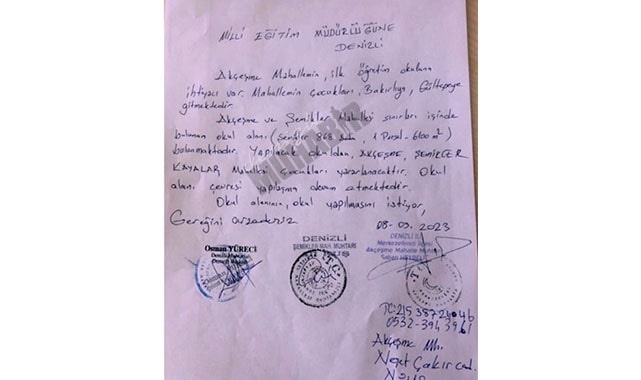 MİLLİ EĞİTİM MÜDÜRLÜĞÜNE
DENİZLİ
Akçeşme Mahallemin, ilk öğretim okuluna
ihtiyacı var. Mahallemin çocukları, Bakırlıya, Gültepeye
gitmektedir.
Akçeşme ve Şemikler Mahallesi sınırları içinde
bulunan okul alanı (Şemikler 868 ada, 1 Parsel - 6100 m²)
bulunmaktadır. Yapılacak okuldan, AKÇEŞME, ŞEMİKLER
KAYALAR Mahallesi çocukları yararlanacaktır. Okul
alanı çevresi yapılaşma devam etmektedir.
Okul alanının, okul yapılmasını istiyor,
Gereğini arzederiz
08-09-2023
Osman YÜRECİ
DENİZLİ
ŞEMİKLER MAH. MUHTARI
DENİZLİ İLİ
Merkezefendi İlçesi
Akçeşme Mahalle Muhtarı
Şaban
T.C.
Akçeşme Mh.
Çakır cad.